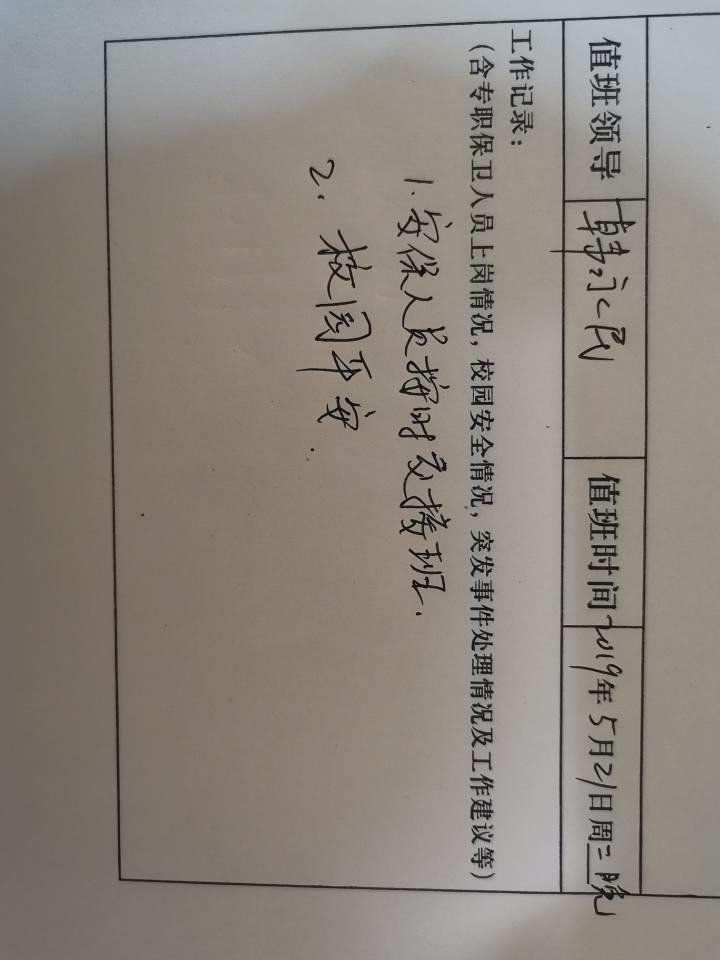 值班领导 韩永民 值班时间 2019年5月21日周二晚
工作记录：
（含专职保卫人员上岗情况，校园安全情况，突发事件处理情况及工作建议等）
1. 安保人员按时交接班.
2. 校园平安.